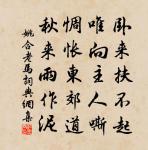 卧来扶不起
唯向主人嘶
惆怅东郊道
秋来雨作泥
姚合老马词典网集